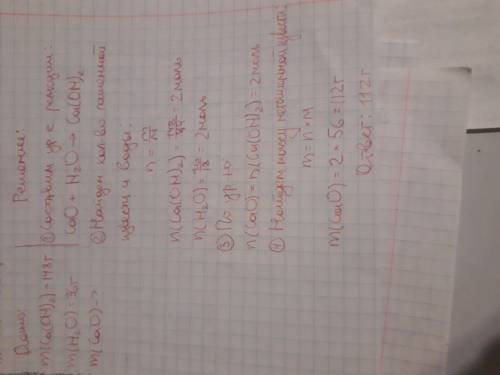 Дано:
m(Ca(OH)2) = 148г
m(H2O) = 36г
m(CaO) ->
Решение:
① Составим ур-е реакции:
CaO + H2O -> Ca(OH)2
② Найдем кол-во гашенной
извести и воды:
n = m/M
n(Ca(OH)2) = 148/74 = 2 моль
n(H2O) = 36/18 = 2 моль
③ По ур-ю
n(CaO) = n(Ca(OH)2) = 2 моль
④ Найдем массу негашенной извести:
m = n · M
m(CaO) = 2 * 56 = 112г
Ответ: 112г